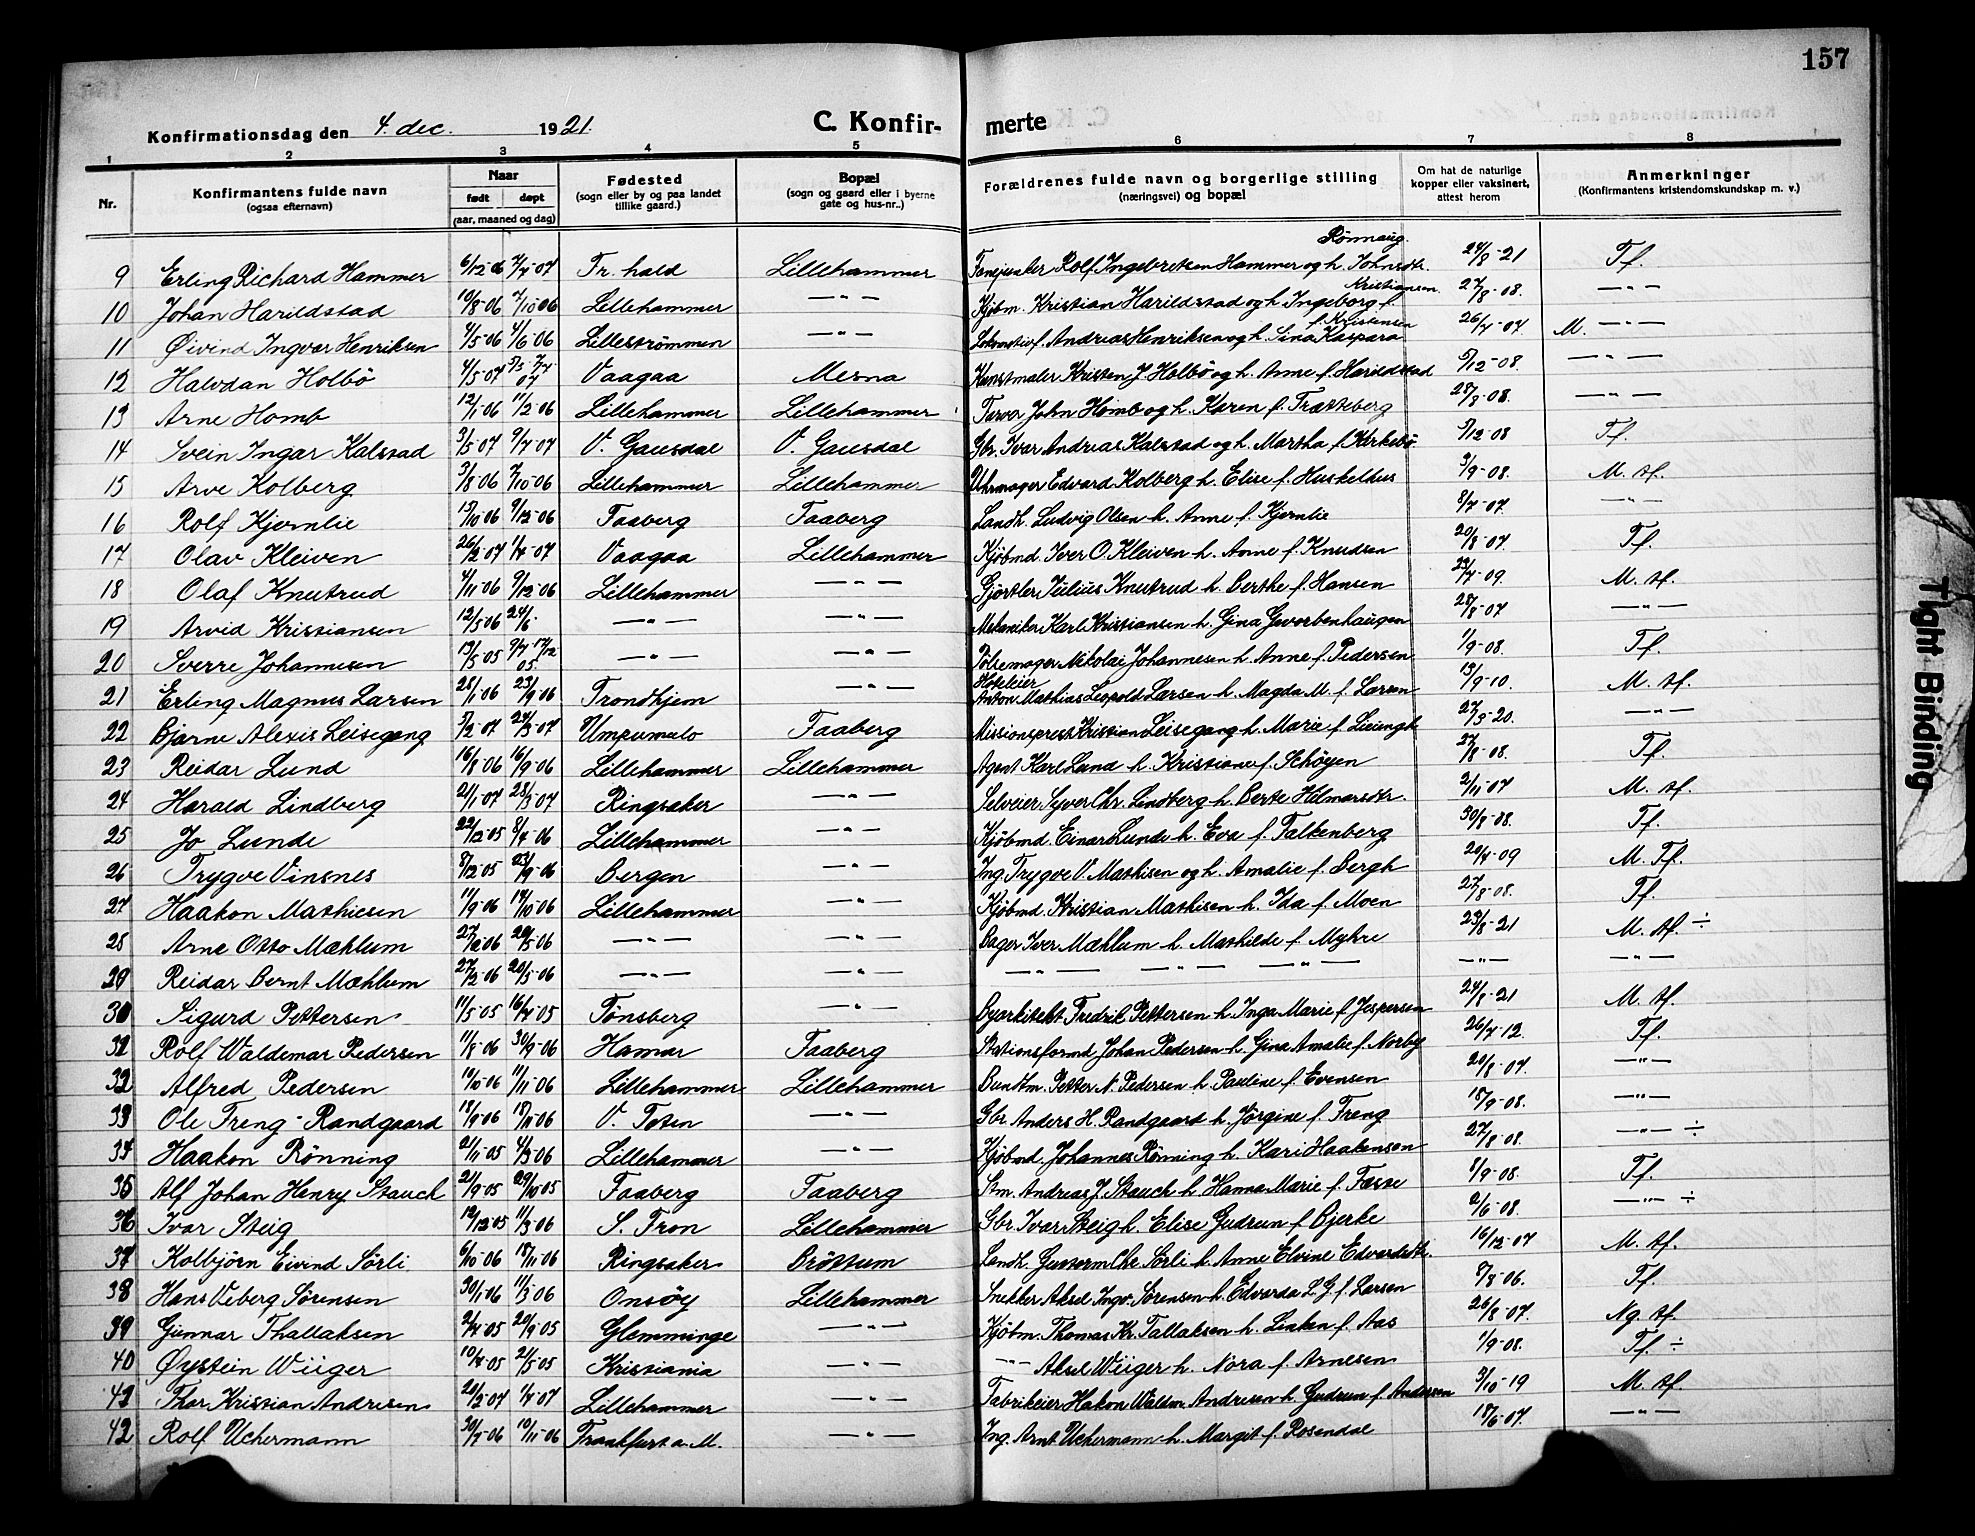 157
Konfirmationsdag den 4. dec. 1921. C. Konfir- merte
1 2 3 4 5 6 7 8
Nr. Konfirmantens fulde navn (ogsaa efternavn) Naar født døpt (aar, maaned og dag) Fødested (sogn eller by og paa landet tillike gaard.) Bopæl (sogn og gaard eller i byerne gate og hus-nr..) Forældrenes fulde navn og borgerlige stilling (næringsvei) og bopæl Om hat de naturlige kopper eller vaksinert, attest herom Anmerkninger (Konfirmantens kristendomskundskap m. v.)
9 Erling Richard Hammer 6/12 06 7/4-07 Fr. hald Lillehammer Rolf Ingebretsen Hammer og h. Rønnaug Johnsdtr. 24/8-21 Tf.
10 Johan Harildstad 10/8-06 7/10 06 Lillehammer —"— Kjøbm. Kristian Harildstad og h. Ingeborg f. Kristiansen 27/8-08. —"—
11 Øivind Ingvar Henriksen 4/5-06 4/6 06 Lillestrømmen —"— Lokomotivf. Andreas Henriksen og h. Sina Kaspara f. Kristensen 26/7-07 M. —"—
12 Halvdan Holbø 4/5-07 Vaagaa Mesna Kunstmaler Kristen J. Holbø og h. Anne f. Harildstad 5/12-08. —"—
13 Arne Homb 12/1-06 11/2-06 Lillehammer Lillehammer Farver John Homb og h. Karen f. Trætteberg 28/8-08. —"—
14 Svein Ingar Kalstad 3/5-07 9/7-07 V. Gausdal V. Gausdal Gbr. Ivar Andreas Kalstad og h. Martha f. Kirkebø. 5/12-08 Tf.
15 Arve Kolberg 3/8-06 7/10-06 Lillehammer Lillehammer Uhrmager Edvard Kolberg h. Elise f. Huskelhus 3/9-08. M. tf.
16 Rolf Kjernlie 15/10-06 9/12-06 Faaberg Faaberg Landh. Ludvig Olsen h. Anne f. Kjernlie 8/7-07. —"—
17 Olav Kleiven 26/2-07 1/4-07 Vaagaa Lillehammer Kjøbmd. Iver O. Kleiven h. Anne f. Knudsen 20/8-07. Tf.
18 Olaf Knutrud 4/11 06 9/12-06 Lillehammer —"— Gjørtler Julius Knutrud h. Berthe f. Hansen 23/7-09. M. tf.
19 Arvid Kristiansen 12/5 06 24/6- —"— —"— Mekaniker Karl Kristiansen h. Gina Gvorbenhaugen 28/8-07 —"—
20 Sverre Johannesen 13/5 05 9/7 17/12 05 —"— —"— Pølsemager Nikolai Johannesen h. Anne f. Pedersen 1/9-08. Tf.
21 Erling Magnus Larsen 28/1-06 23/9 06 Trondhjem —"— Hoteleier Anton Mathias Leopold Larsen h. Magda M. f. Larsen 13/9-10. M. tf.
22 Bjarne Alexis Leisegang 5/2-07 24/3-07 Umpumulo Faaberg Missionsprest Kristian Leisegang h. Marie f. 27/3-20. —"—
23 Reidar Lund 16/8 06 16/9-06 Lillehammer Lillehammer Agent Karl Lund h. Kristiane f. Schøyen 27/8-08. Tf.
24 Harald Lindberg 2/1-07 28/3-07 Ringsaker —"— Selveier Syver Chr. Lindberg h. Berte Hilmarsdtr. 2/11-07 M. tf.
25 Jo Lunde 22/12-05 8/4-06 Lillehammer —"— Kjøbmd. Einar Lunde h. Eva f. Falkenberg 30/8-08. Tf.
26 Trygve Vinsnes 8/12 05 23/9-06 Bergen —"— Ing. Trygve V. Mathisen og h. Amalie f. Bergh 20/4-09 M. Tf.
27 Haakon Mathiesen 11/9-06 14/10 06 Lillehammer —"— Kjøbmd. Kristian Mathisen h. Ida f. Moen 27/8-08. Tf.
28 Arne Otto Mæhlum 27/2 06 20/5-06 —"— —"— Bager Iver Mæhlum h. Mathilde f. Myhre 23/8-21 M. tf. ÷
29 Reidar Bernt Mæhlum 27/2 06 20/5-06 —"— —"— —"— —"— —"— —"— —"—
30 Sigurd Pettersen 11/5-05 16/4-05 Tønsberg —"— Byarkitekt Fredrik Pettersen h. Inga Marie f. Jespersen 24/8-21 M. tf.
31 Rolf Waldemar Pedersen 11/8-06 30/9-06 Hamar Faaberg Stationsformd Johan Pedersen h. Gina Amalie f. Norby 26/4-12. Tf.
32 Alfred Pedersen 10/10 06 11/11-06 Lillehammer Lillehammer Buntm. Petter N. Pedersen h. Pauline f. Evensen 20/8-07. —"—
33 Ole Freng-Randgaard 18/9 06 18/11 06 V. Toten —"— Gbr. Anders H. Randgaard h. Jørgine f. Freng 18/9-08. —"—
34 Haakon Rønning 2/11-05 4/3-06 Lillehammer —"— Kjøbmd. Johannes Rønning h. Kari Haakenson 27/8-08. —"— ÷
35 Alf Johan Henry Stauch 21/9 05 29/10 05 Faaberg Faaberg Stm. Andreas J. Stauch h. Hanna Marie f. Fasse 8/9-08. Tf.
36 Ivar Steig 12/12-05 11/3-06 S. Fron Lillehammer Gbr. Ivar Steig h. Elise Gudrun f. Bjerke 2/6-08. —"— ÷
37 Kolbjørn Eivind Sørli 6/10-06 18/11 06 Ringsaker Brøttum Landh. Guttorm Chr. Sørli h. Anne Elvine Edvardsdtr. 16/12-07 M. tf.
38 Hans Veberg Sørensen 30/1-06 11/3 06 Onsøy Lillehammer Snekker Aksel Ingv. Sørensen h. Edvarda L. G. f. Larsen 8/8-06. Tf.
39 Gunnar Thallaksen 2/4-05 20/9-05 Glemminge —"— Kjøbm. Thomas Kr. Tallaksen h. Linken f. Aas 26/8-07. Ng. tf.
40 Øystein Wiiger 10/4-05 21/5-05 Kristiania —"— —"— Aksel Wiiger h. Nora f. Arnesen 1/9-08. Tf ÷
41 Thor Kristian Andresen 20/2-07 1/4-07 Lillehammer —"— Fabrikeier Hakon Waldm. Andresen h. Gudrun f. Andersen 3/10-19 M. tf.
42 Rolf Uchermann 30/7-06 10/11-06 Frankfurt a. M. —"— Ing. Arnt Uchermann h. Margit f. Rosendal 18/6-07. —"—
Tight Binding